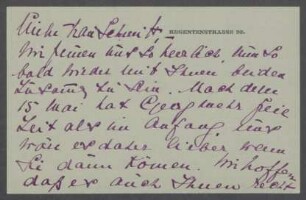 Liebe Frau Schmitt –
REGENTENSTRASSE 20.
Wir freuen uns so herzlich, nun so
bald wieder mit Ihnen beiden
zusammen zu sein. Nach dem
15 Mai hat Georg mehr freie
Zeit als im Anfang, uns
wäre es daher lieber, wenn
Si dann kömen. Wir hoffen
daß es auch Ihnen recht